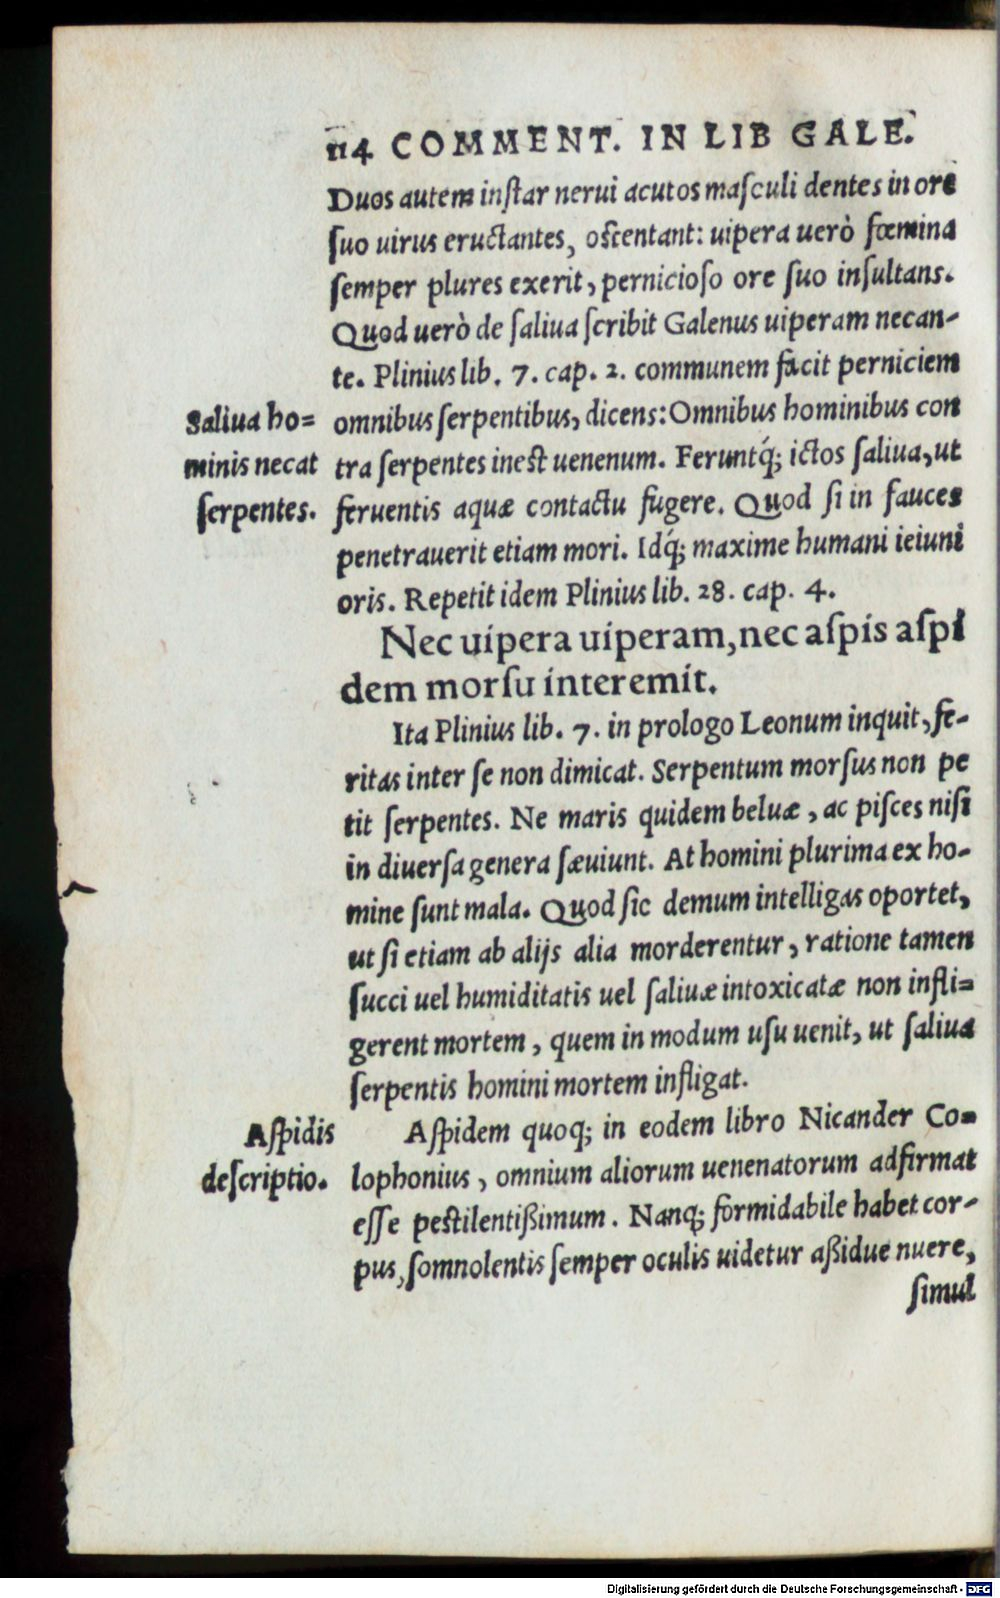 114 COMMENT. IN LIB GALE.
Duos autem inſtar nerui acutos maſculi dentes in ore
ſuo uirus eructantes, oſtentant: uipera uerò fœmina
ſemper plures exerit, pernicioſo ore ſuo inſultans.
Quod uerò de ſaliua ſcribit Galenus uiperam necan-
te. Plinius lib. 7. cap. 2. communem facit perniciem
omnibus ſerpentibus, dicens: Omnibus hominibus con
tra ſerpentes ineſt uenenum. Feruntq́; ictos ſaliua, ut
feruentis aquæ contactu fugere. Quod ſi in fauces
penetrauerit etiam mori. Idq́; maxime humani ieiuni
oris. Repetit idem Plinius lib. 28. cap. 4.
Saliua ho=
minis necat
ſerpentes.
Nec uipera uiperam, nec aſpis aſpi
dem morſu interemit.
Ita Plinius lib. 7. in prologo Leonum inquit, fe-
ritas inter ſe non dimicat. Serpentum morſus non pe
tit ſerpentes. Ne maris quidem beluæ, ac piſces niſi
in diuerſa genera ſæuiunt. At homini plurima ex ho-
mine ſunt mala. Quod ſic demum intelligas oportet,
ut ſi etiam ab alijs alia morderentur, ratione tamen
ſucci uel humiditatis uel ſaliuæ intoxicatæ non infli=
gerent mortem, quem in modum uſu uenit, ut ſaliua
ſerpentis homini mortem infligat.
Aſpidis
deſcriptio.
Aſpidem quoq; in eodem libro Nicander Co=
lophonius, omnium aliorum uenenatorum adfirmat
eſſe peſtilentißimum. Nanq; formidabile habet cor-
pus, ſomnolentis ſemper oculis uidetur aßidue nuere,
ſimul
Digitalisierung gefördert durch die Deutsche Forschungsgemeinschaft - DFG